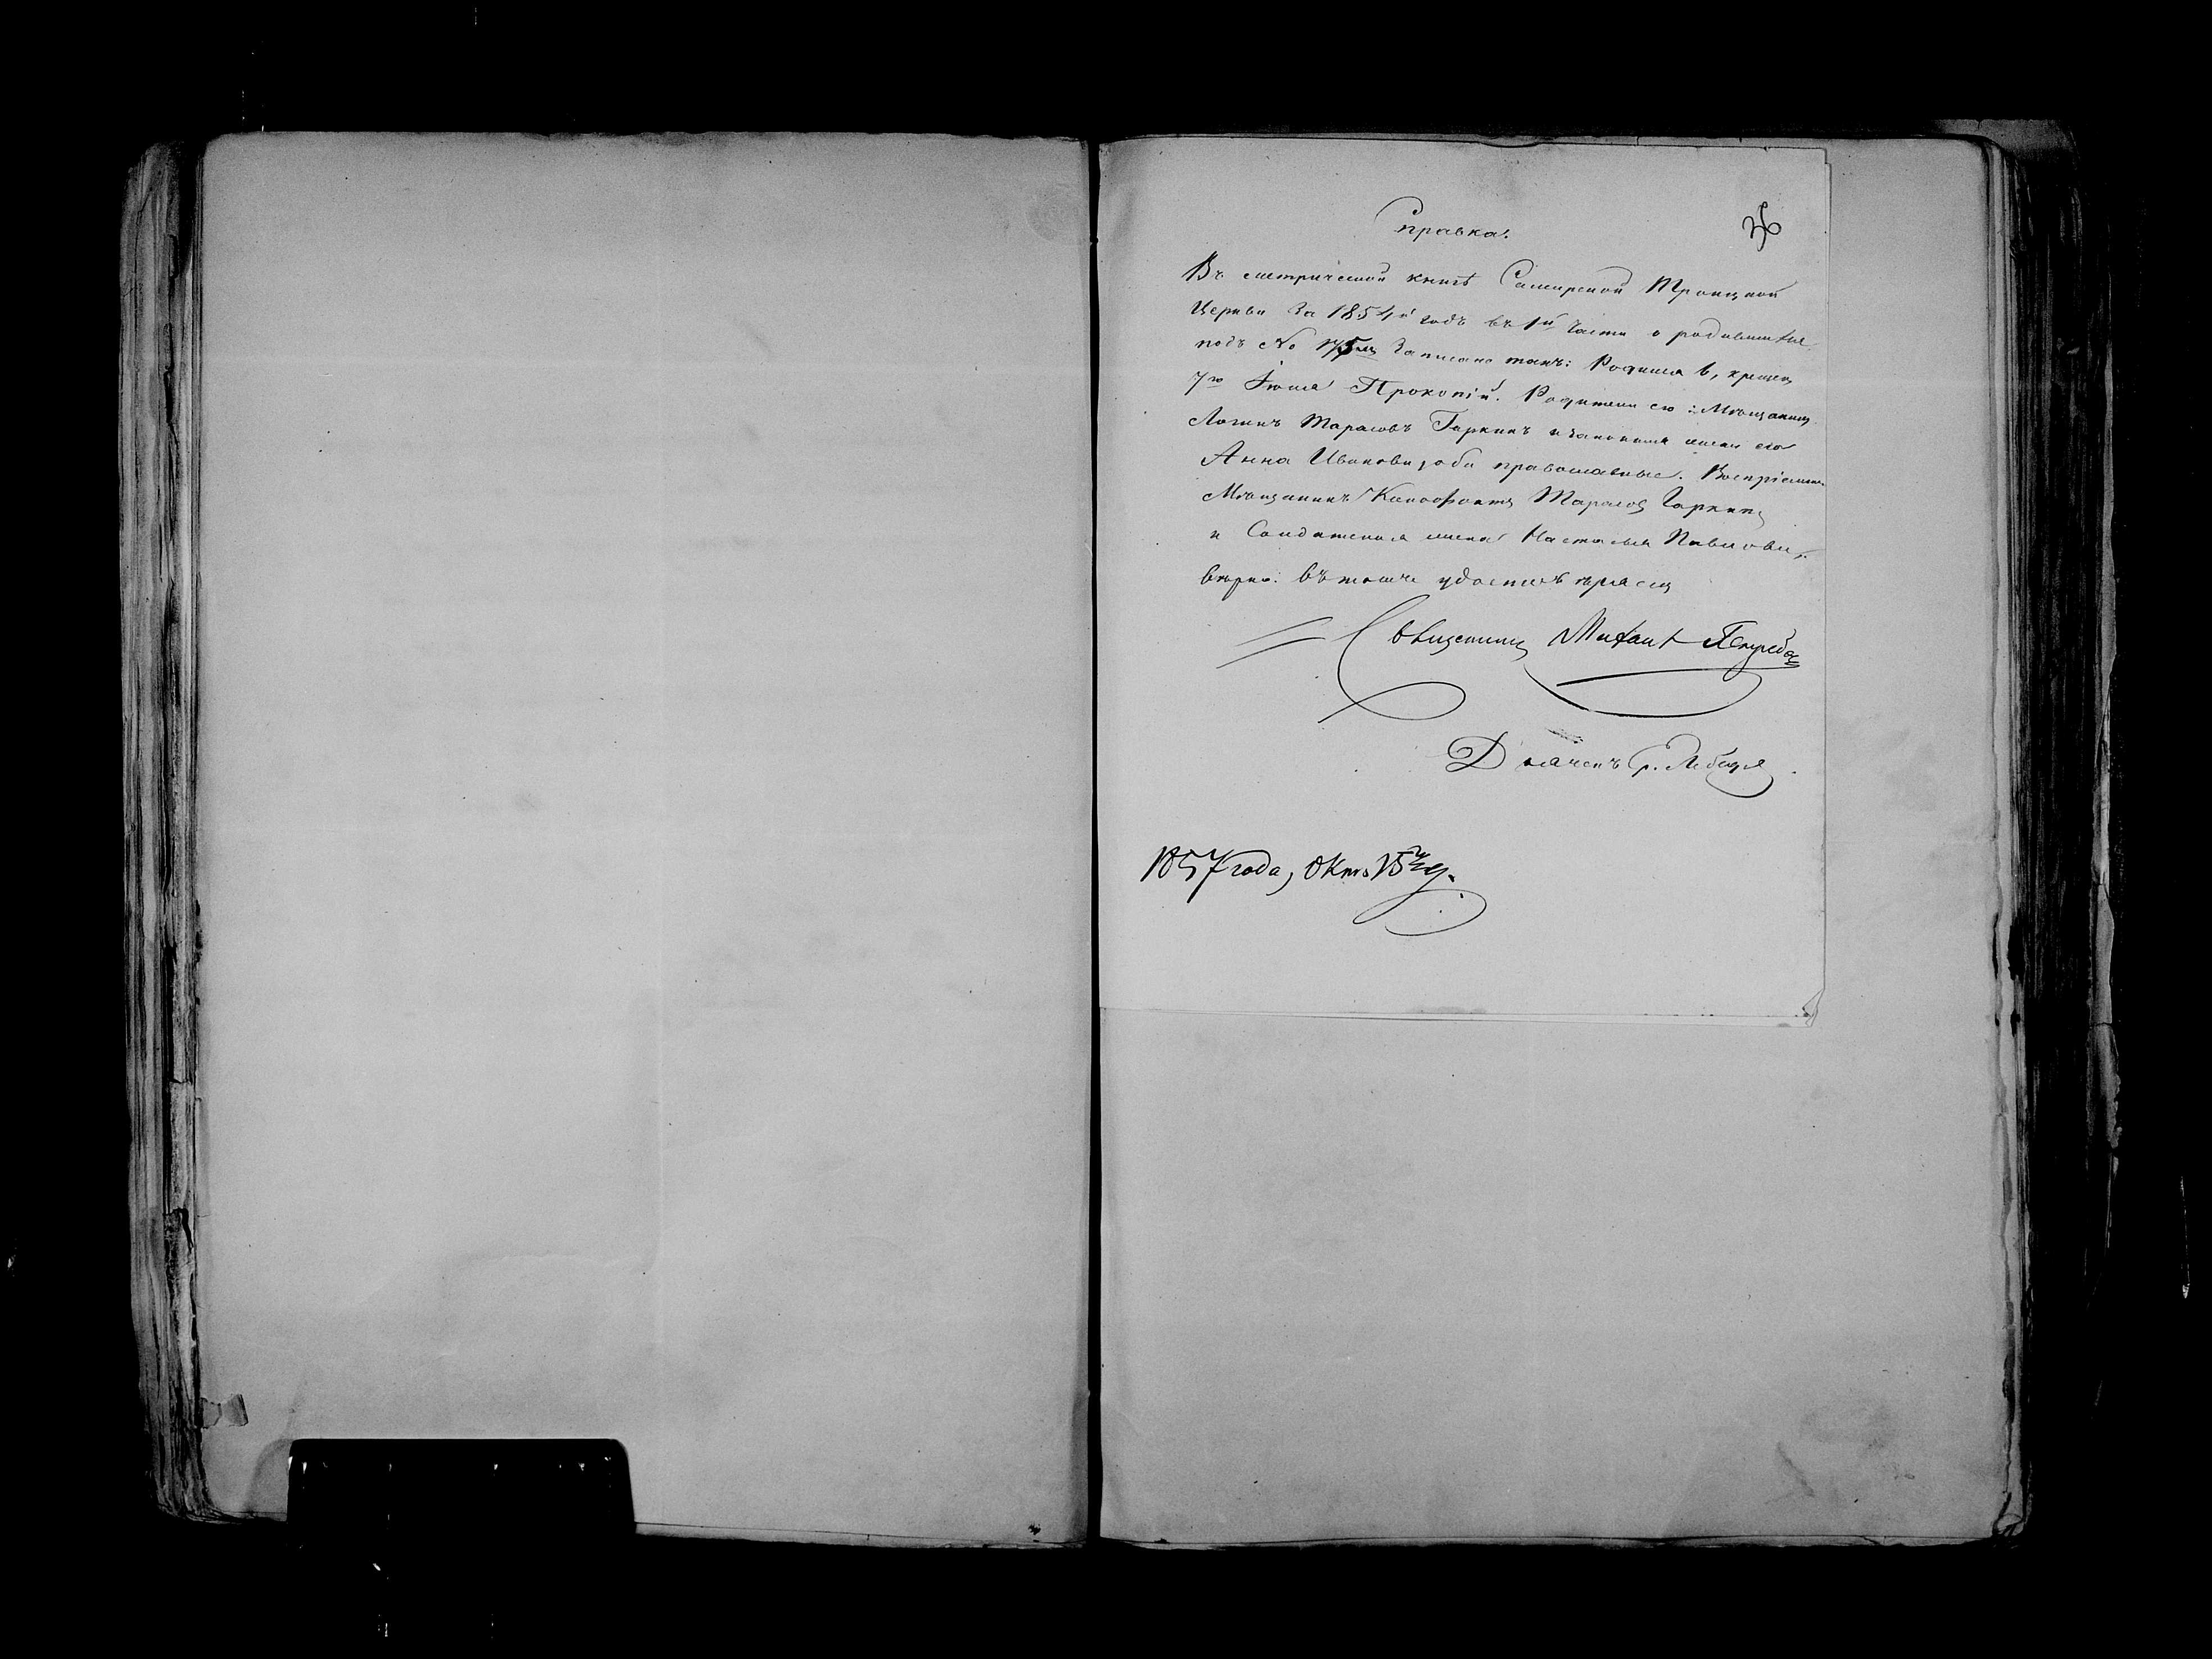 Справка.
36
Въ метрической книгѣ Самарской Троицкой
Церкви за 1854й годъ въ 1й части о родившихся
подъ No 175мъ записано такъ: Родился 6, крещенъ
7го Іюля Прокопій. Родители его: Мѣщанинъ
Логинъ Тарасовъ Гаркинъ и законная жена его
Анна Иванова, оба православные. Воспріемн.
Мѣщанинъ Ксенофонтъ Тарасов Гаркинъ
и Солдатская жена Настасья Павлова,
вѣрно. въ томъ и удостовѣряемъ
Священникъ Михаил
Дьячекъ
1857 года, Окт. 15 д.